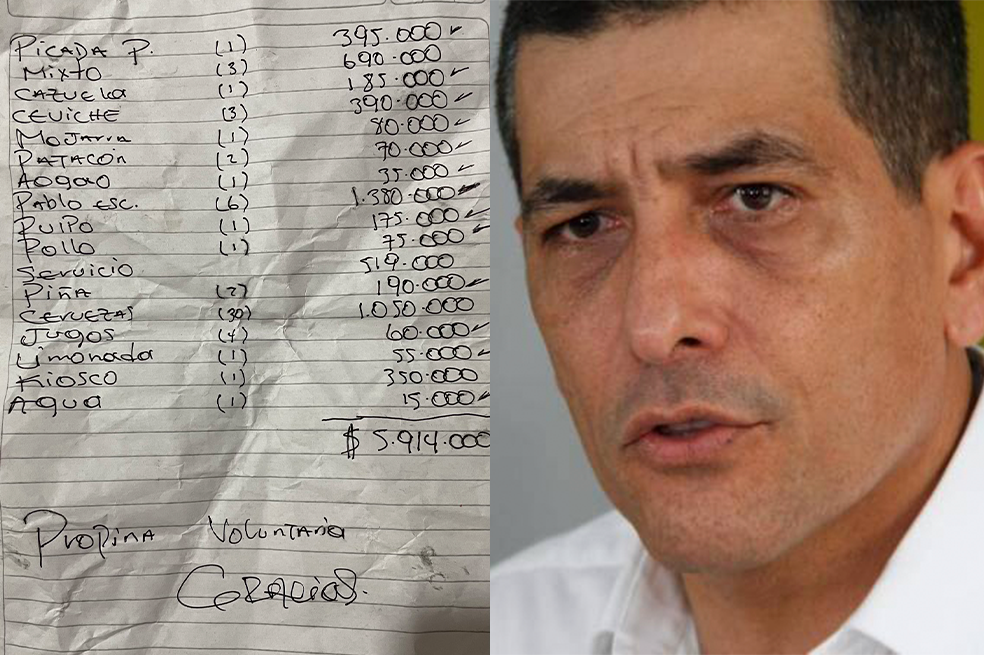 PICADA P. (1) 395.000
MIXTO (3) 690.000
CAZUELA (1) 185.000
CEVICHE (3) 390.000
MOJARRA (1) 80.000
PATACÓN (2) 70.000
AOGAO (1) 35.000
Pablo esc. (6) 1.380.000
PULPO (1) 175.000
Pollo (1) 75.000
SERVICIO 519.000
PIÑA (2) 190.000
CERVEZAS (30) 1.050.000
JUGOS (4) 60.000
Limonada (1) 55.000
KIOSCO (1) 350.000
AGUA (1) 15.000
$ 5.914.000
PROPINA VOLUNTARIA
GRACIAS.